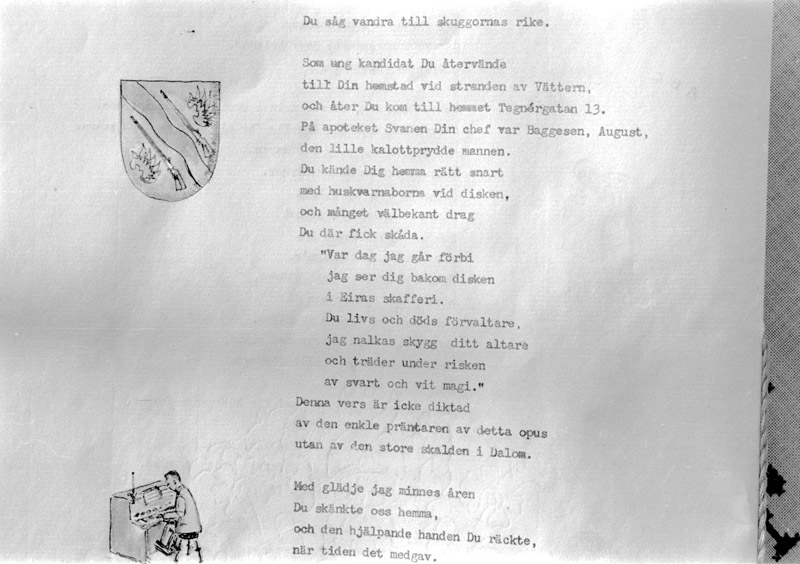 Du såg vandra till skuggornas rike.
Som ung kandidat Du återvände
till Din hemstad vid stranden av Vättern,
och åter Du kom till hemmet Tegnérgatan 13.
På apoteket Svanen Din chef var Baggesen, August,
den lille kalottprydde mannen.
Du kände Dig hemma rätt snart
med huskvarnaborna vid disken,
och månget välbekant drag
Du där fick skåda.
"Var dag jag går förbi
jag ser dig bakom disken
i Eiras skafferi.
Du livs och döds förvaltare,
jag nalkas skygg ditt altare
och träder under risken
av svart och vit magi."
Denna vers är icke diktad
av den enkle präntaren av detta opus
utan av den store skalden i Dalom.
Med glädje jag minnes åren
Du skänkte oss hemma,
och den hjälpande handen Du räckte,
när tiden det medgav.